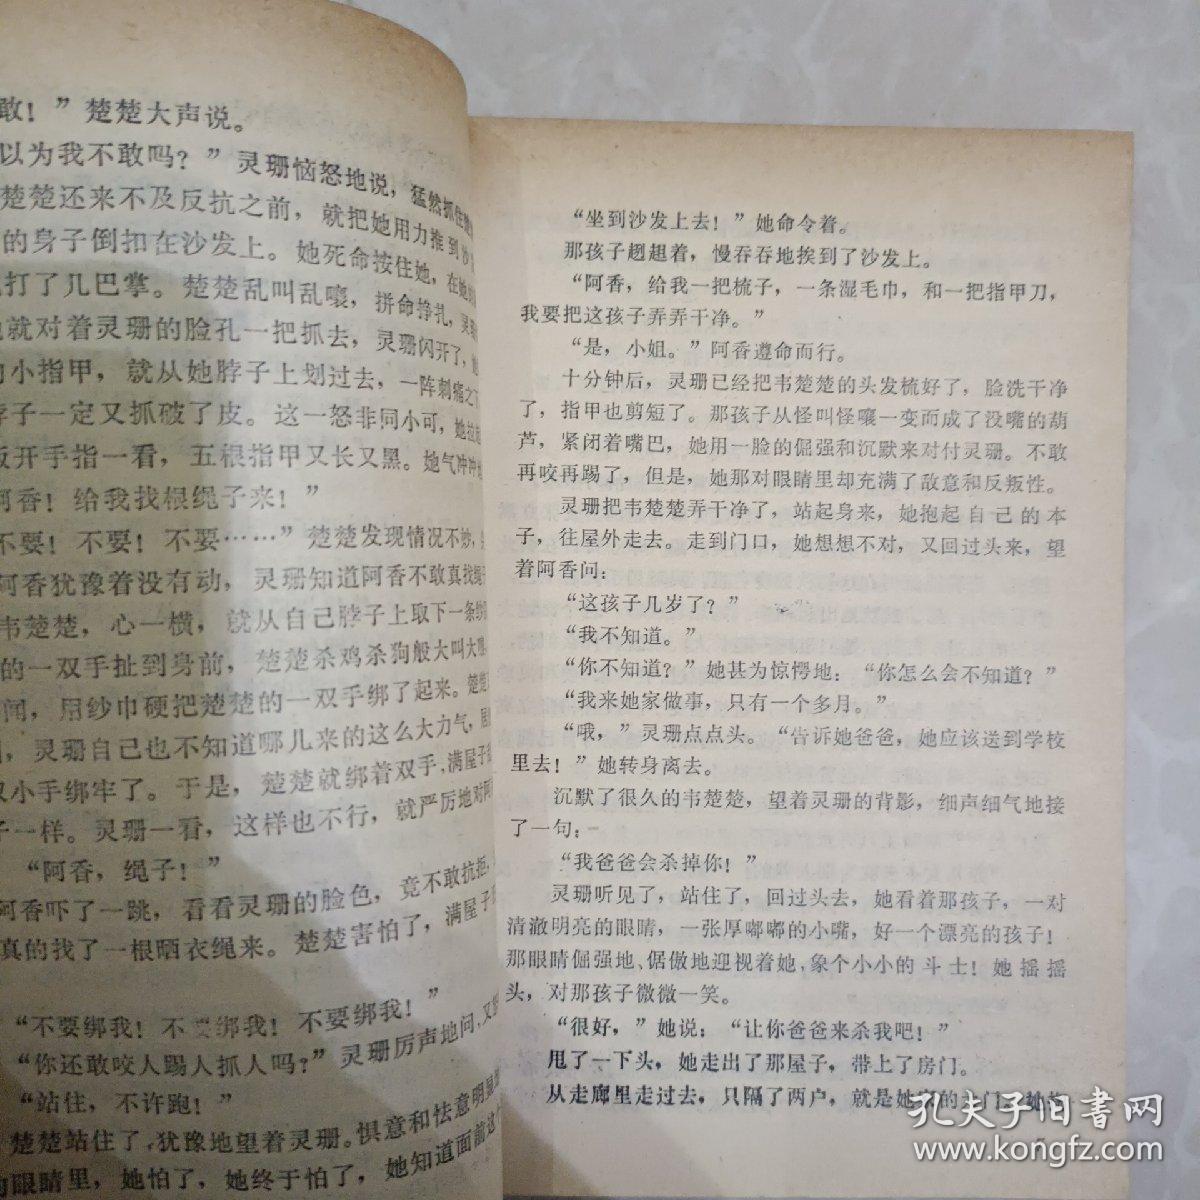 敢！”楚楚大声说。
以为我不敢吗？”灵珊恼怒地说，猛然抓住
楚楚还来不及反抗之前，就把她用力推到沙
的身子倒扣在沙发上。她死命按住她，在她
打了几巴掌。楚楚乱叫乱嚷，拼命挣扎，灵
就对着灵珊的脸孔一把抓去，灵珊闪开了，
小指甲，就从她脖子上划过去，一阵刺痛之下
脖子一定又抓破了皮。这一怒非同小可，她拉
扳开手指一看，五根指甲又长又黑。她气冲冲
阿香！给我找根绳子来！”
不要！不要！不要……”楚楚发现情况不妙，
阿香犹豫着没有动，灵珊知道阿香不敢真找
韦楚楚，心一横，就从自己脖子上取下一条纱
的一双手扯到身前，楚楚杀鸡杀狗般大叫大
间，用纱巾硬把楚楚的一双手绑了起来。楚楚
，灵珊自己也不知道哪儿来的这么大力气，居
双小手绑牢了。于是，楚楚就绑着双手，满屋子
子一样。灵珊一看，这样也不行，就严厉地对阿
“阿香，绳子！”
阿香吓了一跳，看看灵珊的脸色，竟不敢抗拒，
真的找了一根晒衣绳来。楚楚害怕了，满屋子
“不要绑我！不要绑我！不要绑我！”
“你还敢咬人踢人抓人吗？”灵珊厉声地问，又
“站住，不许跑！”
楚楚站住了，犹豫地望着灵珊。惧意和怯意明显
的眼睛里，她怕了，她终于怕了，她知道面前这
“坐到沙发上去！”她命令着。
那孩子趔趄着，慢吞吞地挨到了沙发上。
“阿香，给我一把梳子，一条湿毛巾，和一把指甲刀，
我要把这孩子弄弄干净。”
“是，小姐。”阿香遵命而行。
十分钟后，灵珊已经把韦楚楚的头发梳好了，脸洗干净
了，指甲也剪短了。那孩子从怪叫怪嚷一变而成了没嘴的葫
芦，紧闭着嘴巴，她用一脸的倔强和沉默来对付灵珊。不敢
再咬再踢了，但是，她那对眼睛里却充满了敌意和反叛性。
灵珊把韦楚楚弄干净了，站起身来，她抱起自己的本
子，往屋外走去。走到门口，她想想不对，又回过头来，望
着阿香问：
“这孩子几岁了？”
“我不知道。”
“你不知道？”她甚为惊愕地：“你怎么会不知道？”
“我来她家做事，只有一个多月。”
“哦，”灵珊点点头。“告诉她爸爸，她应该送到学校
里去！”她转身离去。
沉默了很久的韦楚楚，望着灵珊的背影，细声细气地接
了一句：
“我爸爸会杀掉你！”
灵珊听见了，站住了，回过头去，她看着那孩子，一对
清澈明亮的眼睛，一张厚嘟嘟的小嘴，好一个漂亮的孩子！
那眼睛倔强地、倨傲地迎视着她，象个小小的斗士！她摇摇
头，对那孩子微微一笑。
“很好，”她说：“让你爸爸来杀我吧！”
甩了一下头，她走出了那屋子，带上了房门。
从走廊里走过去，只隔了两户，就是她家的大门，她
孔夫子旧书网
www.kongfz.com